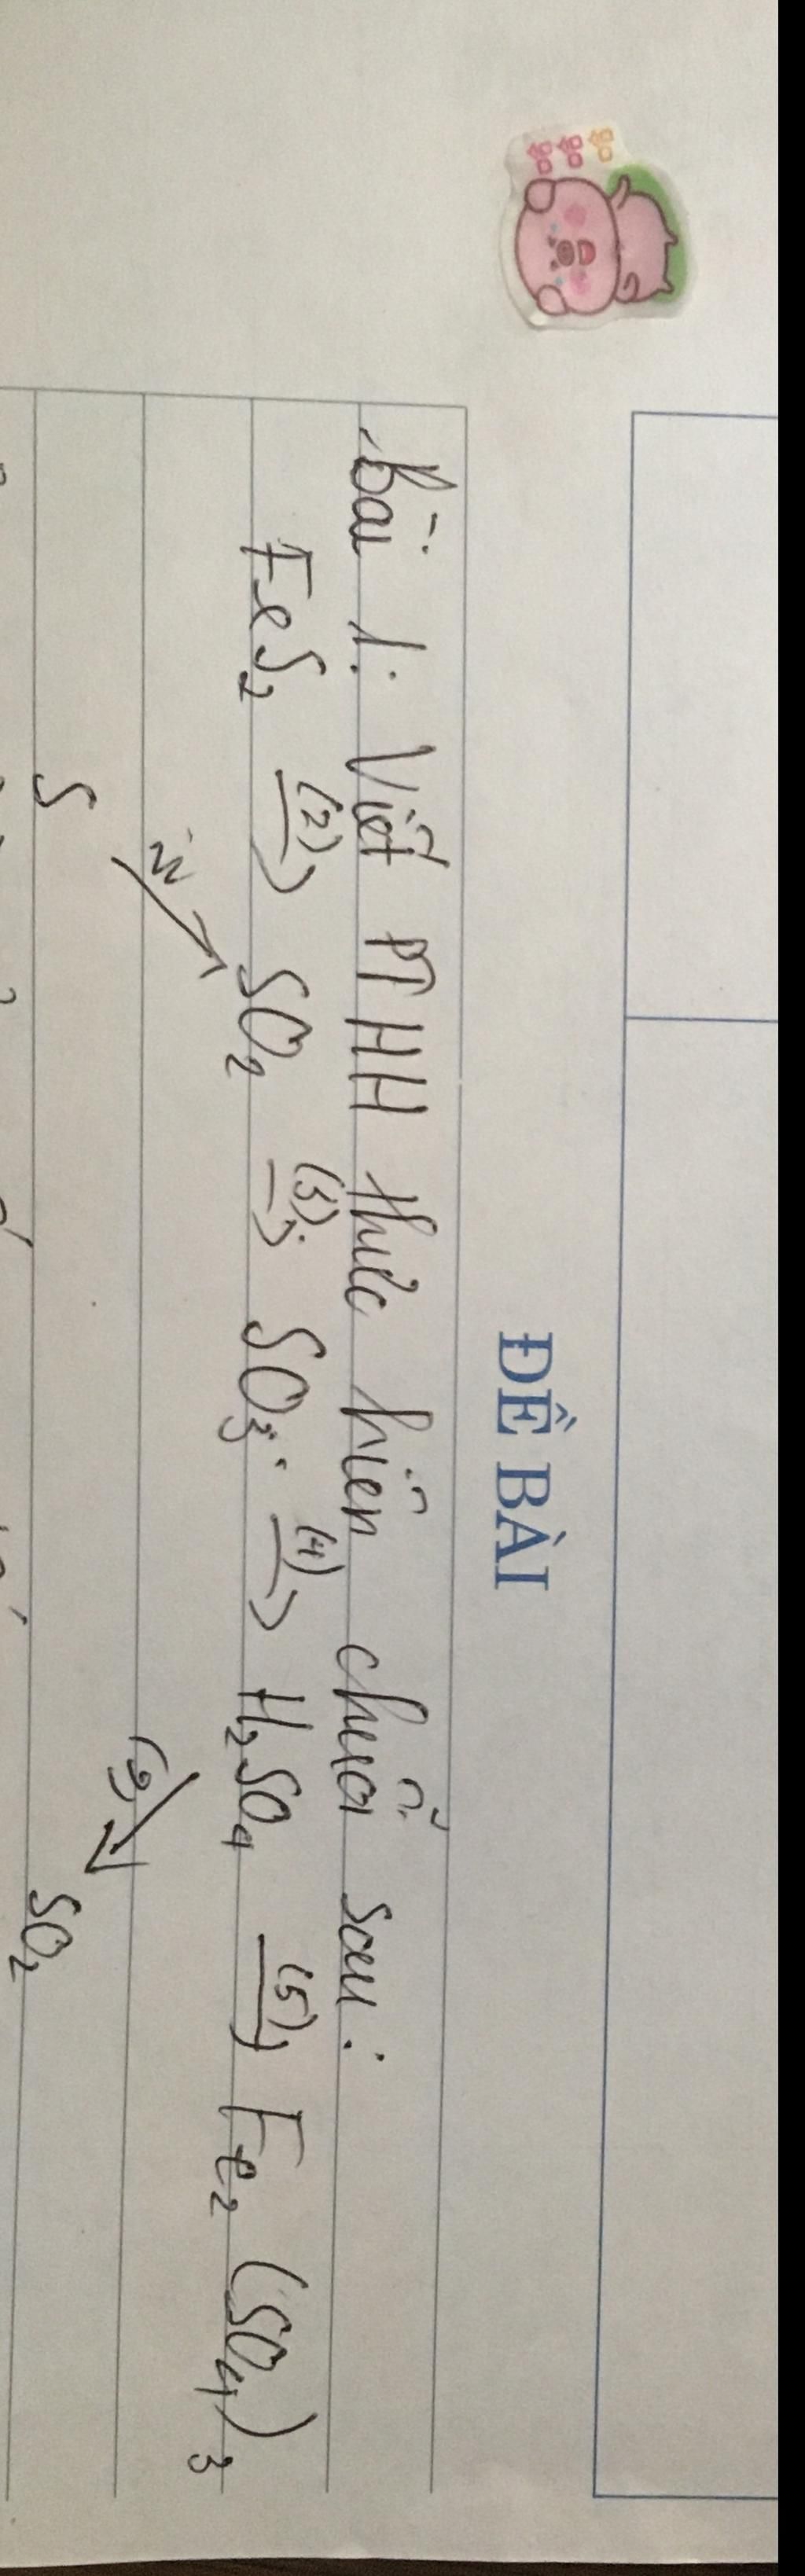 哈哈哈
ĐỀ BÀI
Bài 1: Viết PTHH thực hiện chuỗi sau:
FeS₂ (2)→ SO₂ (3)→ SO₃ (4)→ H₂SO₄ (5)→ Fe₂(SO₄)₃
S SO₂